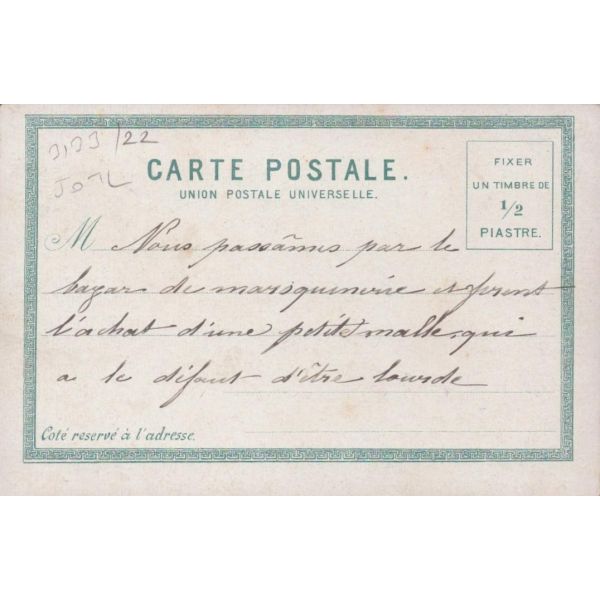 /22
CARTE POSTALE.
UNION POSTALE UNIVERSELLE.
FIXER
UN TIMBRE DE
1/2
PIASTRE.
M Nous passâmes par le
bazar de maroquinerie et firent
l'achat d'une petite malle qui
a le défaut d'être lourde
Coté reservé à l'adresse.